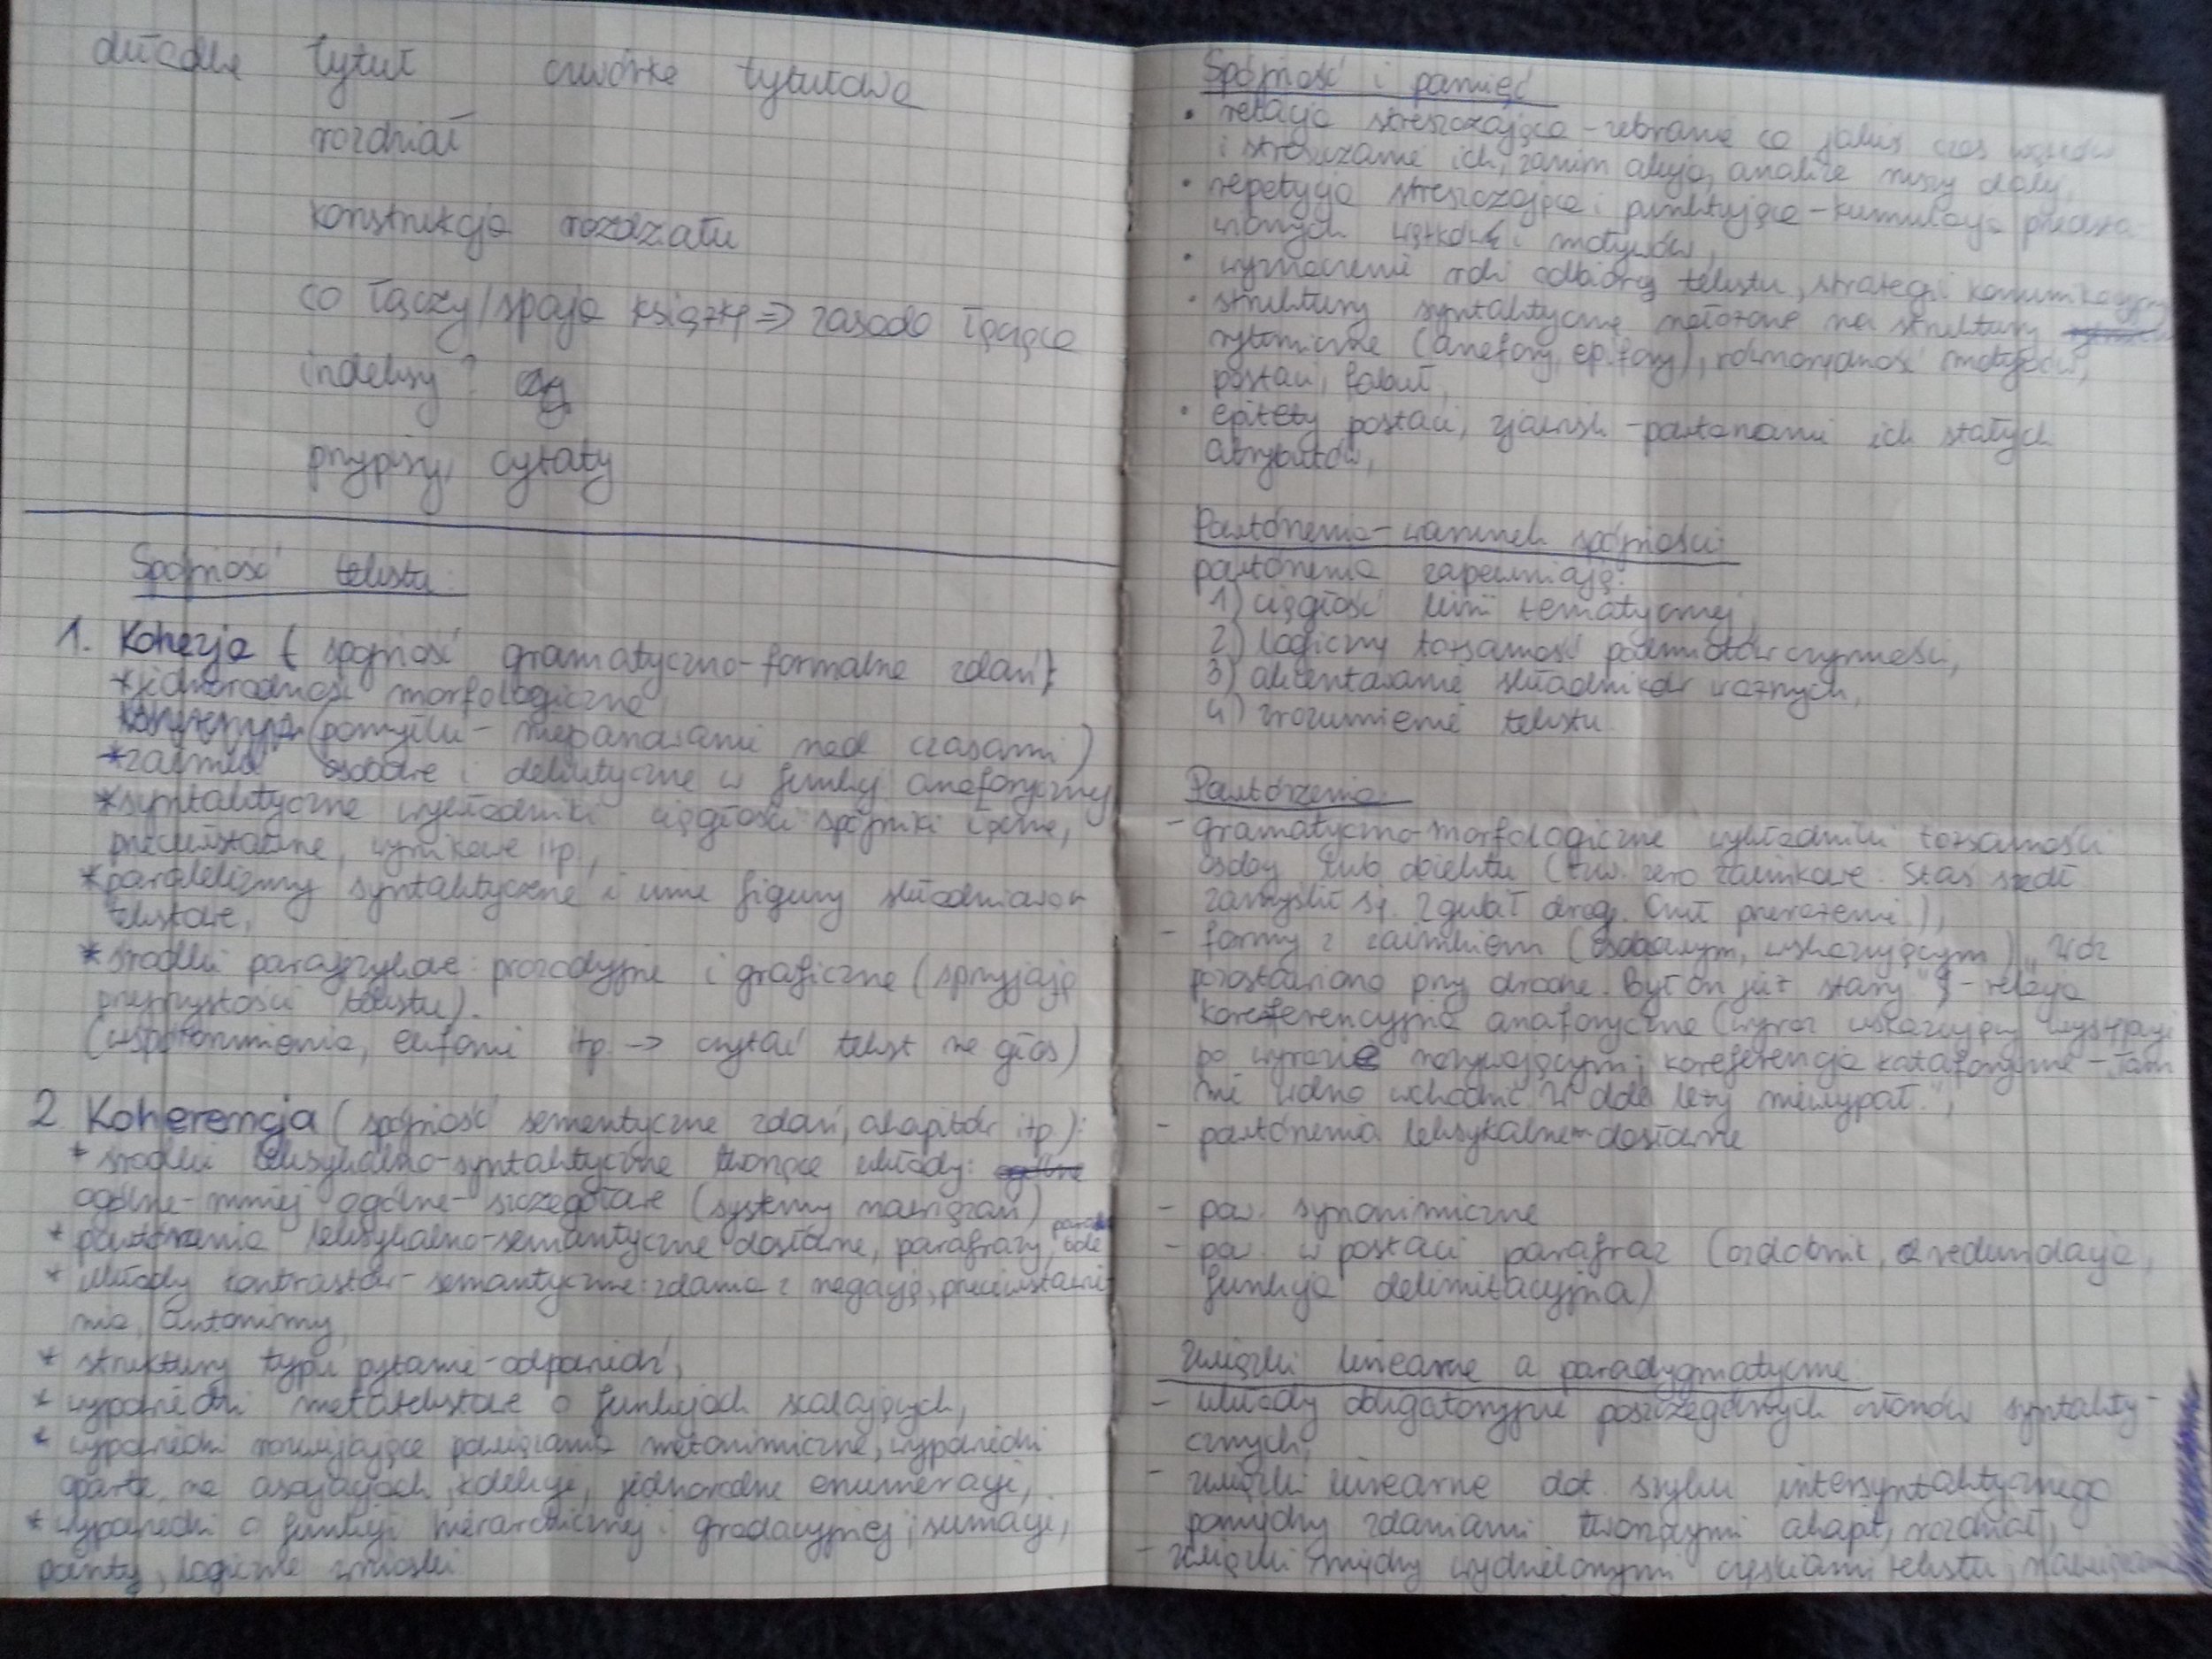 okładka tytuł czwórka tytułowa
rozdział
konstrukcja rozdziału
co łączy/spaja książkę => zasada łącząca
indeksy?
przypisy, cytaty
Spójność tekstu:
1. Kohezja (spójność gramatyczno-formalna zdań):
*jednorodność morfologiczna,
(pomyłki - niepanowanie nad czasami)
*zaimki osobowe i deiktyczne w funkcji anaforycznej
*syntaktyczne wykładniki ciągłości: spójniki łączne,
przeciwstawne, wynikowe itp.,
*paralelizmy syntaktyczne i inne figury składniowo-
tekstowe,
*środki parajęzykowe: prozodyjne i graficzne (sprzyjają
przejrzystości tekstu).
(wspobrzmienia, eufonie itp. -> czytać tekst na głos)
2 Koherencja (spójność semantyczna zdań, akapitów itp.):
* środki leksykalno-syntaktyczne tworzące układy:
ogólne-mniej ogólne-szczegółowe (systemy nawiązań)
* powtórzenia leksykalno-semantyczne dosłowne, parafrazy,
* układy kontrastów-semantyczne: zdania z negacją, przeciwstawie-
nia, antonimy,
* struktury typu pytanie-odpowiedź,
* wypowiedzi metatekstowe o funkcjach scalających,
* wypowiedzi rozwijające powiązania metonimiczne, wypowiedzi
oparte na asocjacjach, kolekcji, jednorodne enumeracje,
* wypowiedzi o funkcji hierarchicznej i gradacyjnej; sumacje,
pointy, logiczne wnioski
Spójność i pamięć
• relacja streszczająca - zebranie co jakiś czas wątków
i streszczanie ich, zanim akcja, analiza ruszy dalej,
• repetycja streszczająca i puentująca - kumulacja
wątków i motywów,
• wyznaczenie roli odbiorcy tekstu, strategii
• struktury syntaktyczne nałożone na struktury
rytmiczne (anafory, epifory), równorzędność motywów,
postaci, fabuł,
• epitety postaci, zjawisk - powtarzanie ich stałych
atrybutów,
Powtórzenia - warunek spójności:
powtórzenia zapewniają:
1) ciągłość linii tematycznej,
2) logiczną tożsamość podmiotów czynności,
3) akcentowanie składników ważnych,
4) zrozumienie tekstu.
Powtórzenia:
- gramatyczno-morfologiczne wykładniki tożsamości
osoby lub obiektu (tzw. zero zaimkowe. Staś szedł
zamyślił się. Zgubił drogę. Czuł przerażenie.),
- formy z zaimkiem (osobowym, wskazującym) „Wóz
pozostawiono przy drodze. Był on już stary" - relacja
koreferencyjna anaforyczna (wyraz wskazujący występuje
po wyrazie nazywającym; koreferencja kataforyczna - „Tam
nie wolno wchodzić. W dole leży niewypał.",
- powtórzenia leksykalne - dosłowne
- pow. synonimiczne
- pow. w postaci parafraz (ozdobnik, redundacja,
funkcja delimitacyjna)
Związki linearne a paradygmatyczne:
- układy obligatoryjne poszczególnych członów syntakty-
cznych,
- związki linearne dot. szyku intersyntaktycznego
pomiędzy zdaniami tworzącymi akapit, rozdział,
- związki między wydzielonymi częściami tekstu,